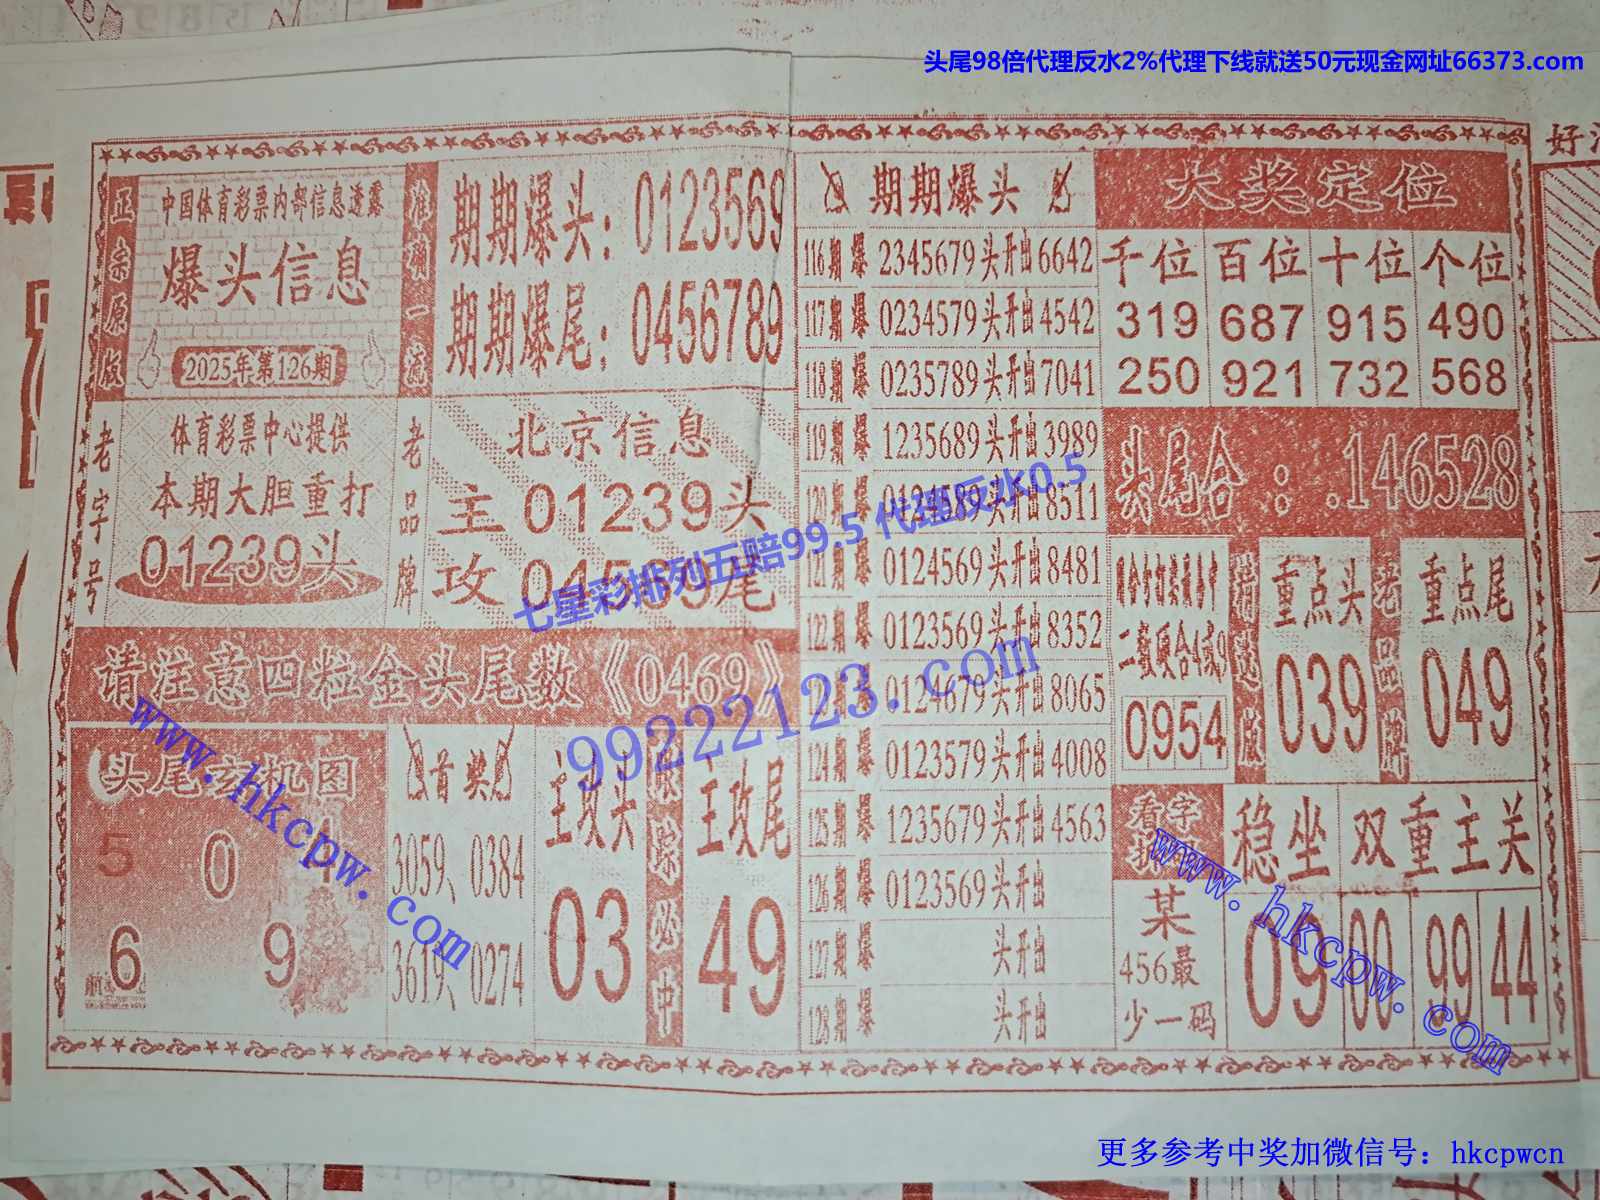 头尾98倍代理反水2%代理下线就送50元现金网址66373.com
正宗原版
中国体育彩票内部信息透露
爆头信息
2025年第126期
准确一流
期期爆头：0123569
期期爆尾：0456789
老字号
体育彩票中心提供
本期大胆重打
01239头
老品牌
北京信息
主01239头
攻04569尾
请注意四粒金头尾数《0469》
头尾玄机图
5 0 4
6 9
首奖
3059、0384
3619、0274
主攻头
03
跟踪必中
主攻尾
49
期期爆头
116期爆 2345679头开出6642
117期爆 0234579头开出4542
118期爆 0235789头开出7041
119期爆 1235689头开出3989
120期爆 0124589头开出8511
121期爆 0124569头开出8481
122期爆 0123569头开出8352
123期爆 0124679头开出8065
124期爆 0123579头开出4008
125期爆 1235679头开出4563
126期爆 0123569头开出
127期爆 头开出
128期爆 头开出
大奖定位
千位 百位 十位 个位
319 687 915 490
250 921 732 568
头尾合：.146528
二数硬合4或9
0954
精选版
重点头
039
老品牌
重点尾
049
看字
某
456最
少一码
稳坐
09
双重主关
00 99 44
七星彩排列五赔99.5 代理反水0.5
99222123.com
www.hkcpw.com
www.hkcpw.com
更多参考中奖加微信号：hkcpwcn